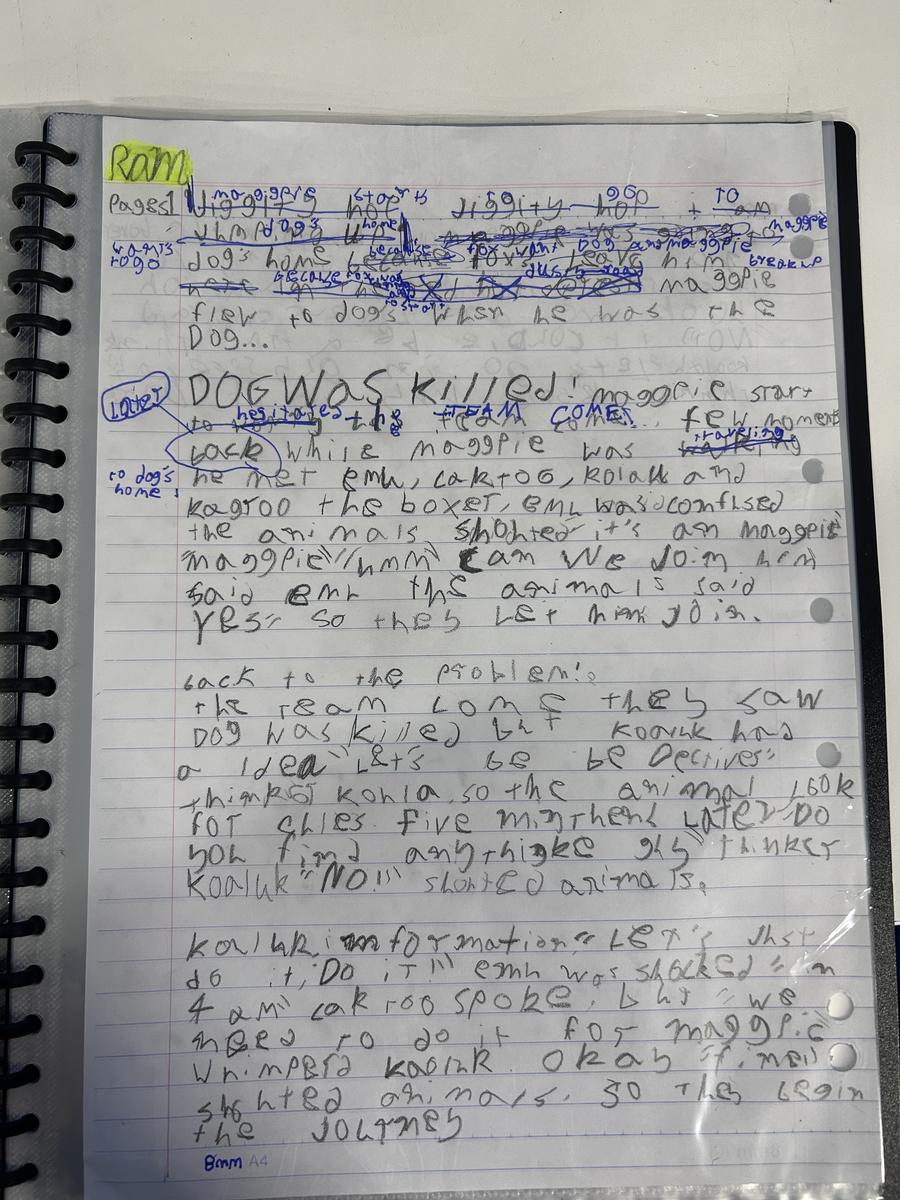 Ram
Pages 1 Diggity hop diggity hop + am
maggipie starts 5gigy gop To
Jumping up
dog's home maggpie was to maggpie
wants to go dog's home because fox want Dog and maggpie break up
because fox dusty road maggpie
flew to dog's when he was the
Dog...
DOG WAS Killed! maggpie start
to hesitated the TEAM COME!.. few moment
Later back while maggpie was traveling
to dog's home he met emu, caktoo, kolauk and
kagroo the boxer, emu was confused
the animals shouted it's am maggpie
"maggpie" "hmm can we Join him
said emu the animals said
Yes" so they Let him Join.
back to the problem!.
the team come they saw
Dog was killed but koaluk had
a idea "Let's be be Dectives"
thinker koula. so the animal look
for clues. five minthend Later "Do
you find anythigke guy" thinker
Koaluk "No!!" shouted animals.
Koaluk information "Let's Just
do it, Do iT!!" emu was shocked "in
4 am" cak too spoke. but "we
need to do it for maggpie"
whimperd kaoluk. okay "fine!!"
shouted animals. So they begin
the Journey
8mm A4